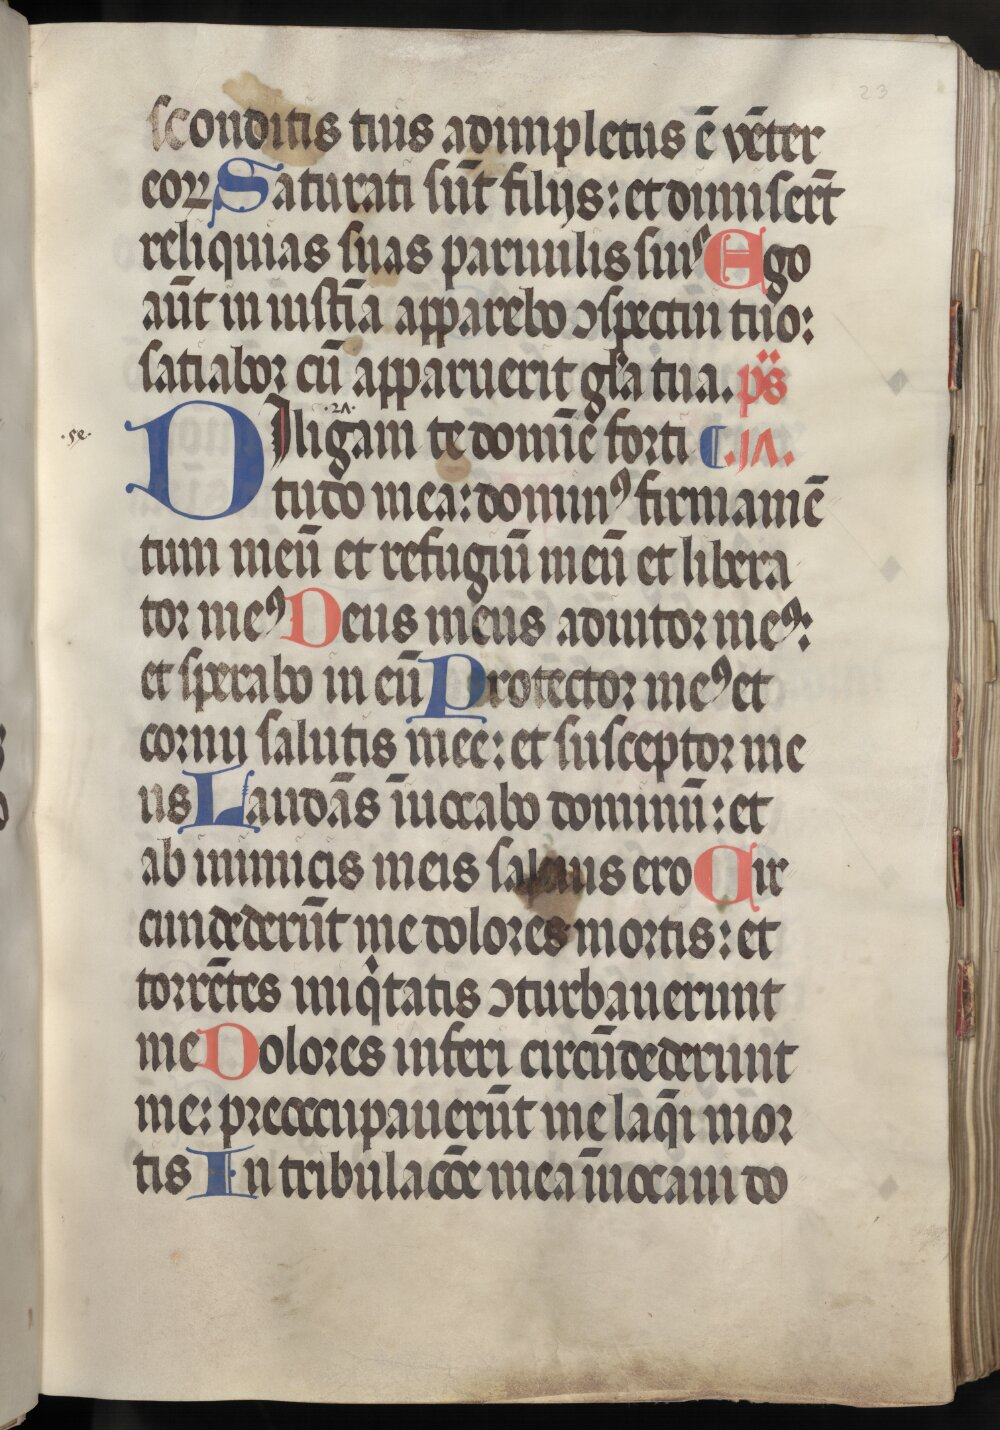 23
sconditis tuis adimpletus ē vēter
eoꝝ Saturati sūt filijs: et dimiserūt
reliquias suas paruulis suiꝰ Ego
aūt in iusti͞a apparebo ↄspectui tuo:
satiabor cū apparuerit gl͞a tua. p͞s
.se. DIligam te domi͞e forti ⸿ .ıʌ.
tudo mea: dominꝰ firmamē
tum meū et refugiū meū et libera
tor meꝰ Deus meus adiutor meꝰ:
et sperabo in eū Protector meꝰ et
cornu salutis mee: et susceptor me
us Laudās īuocabo dominū: et
ab inimicis meis saluus ero Cir
cundederūt me dolores mortis: et
torrētes iniqͥtatis ↄturbauerunt
me Dolores inferi circūdederunt
me: preoccupauerūt me laq̄i mor
tis In tribulacōe mea īuocaui do